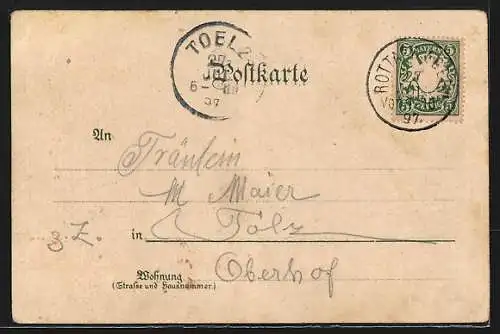 TOELZ
Postkarte
BAYERN
5 5
97
An Fräulein
M Maier
z. Z.
in Tölz
Oberhof
Wohnung
(Straße und Hausnummer.)